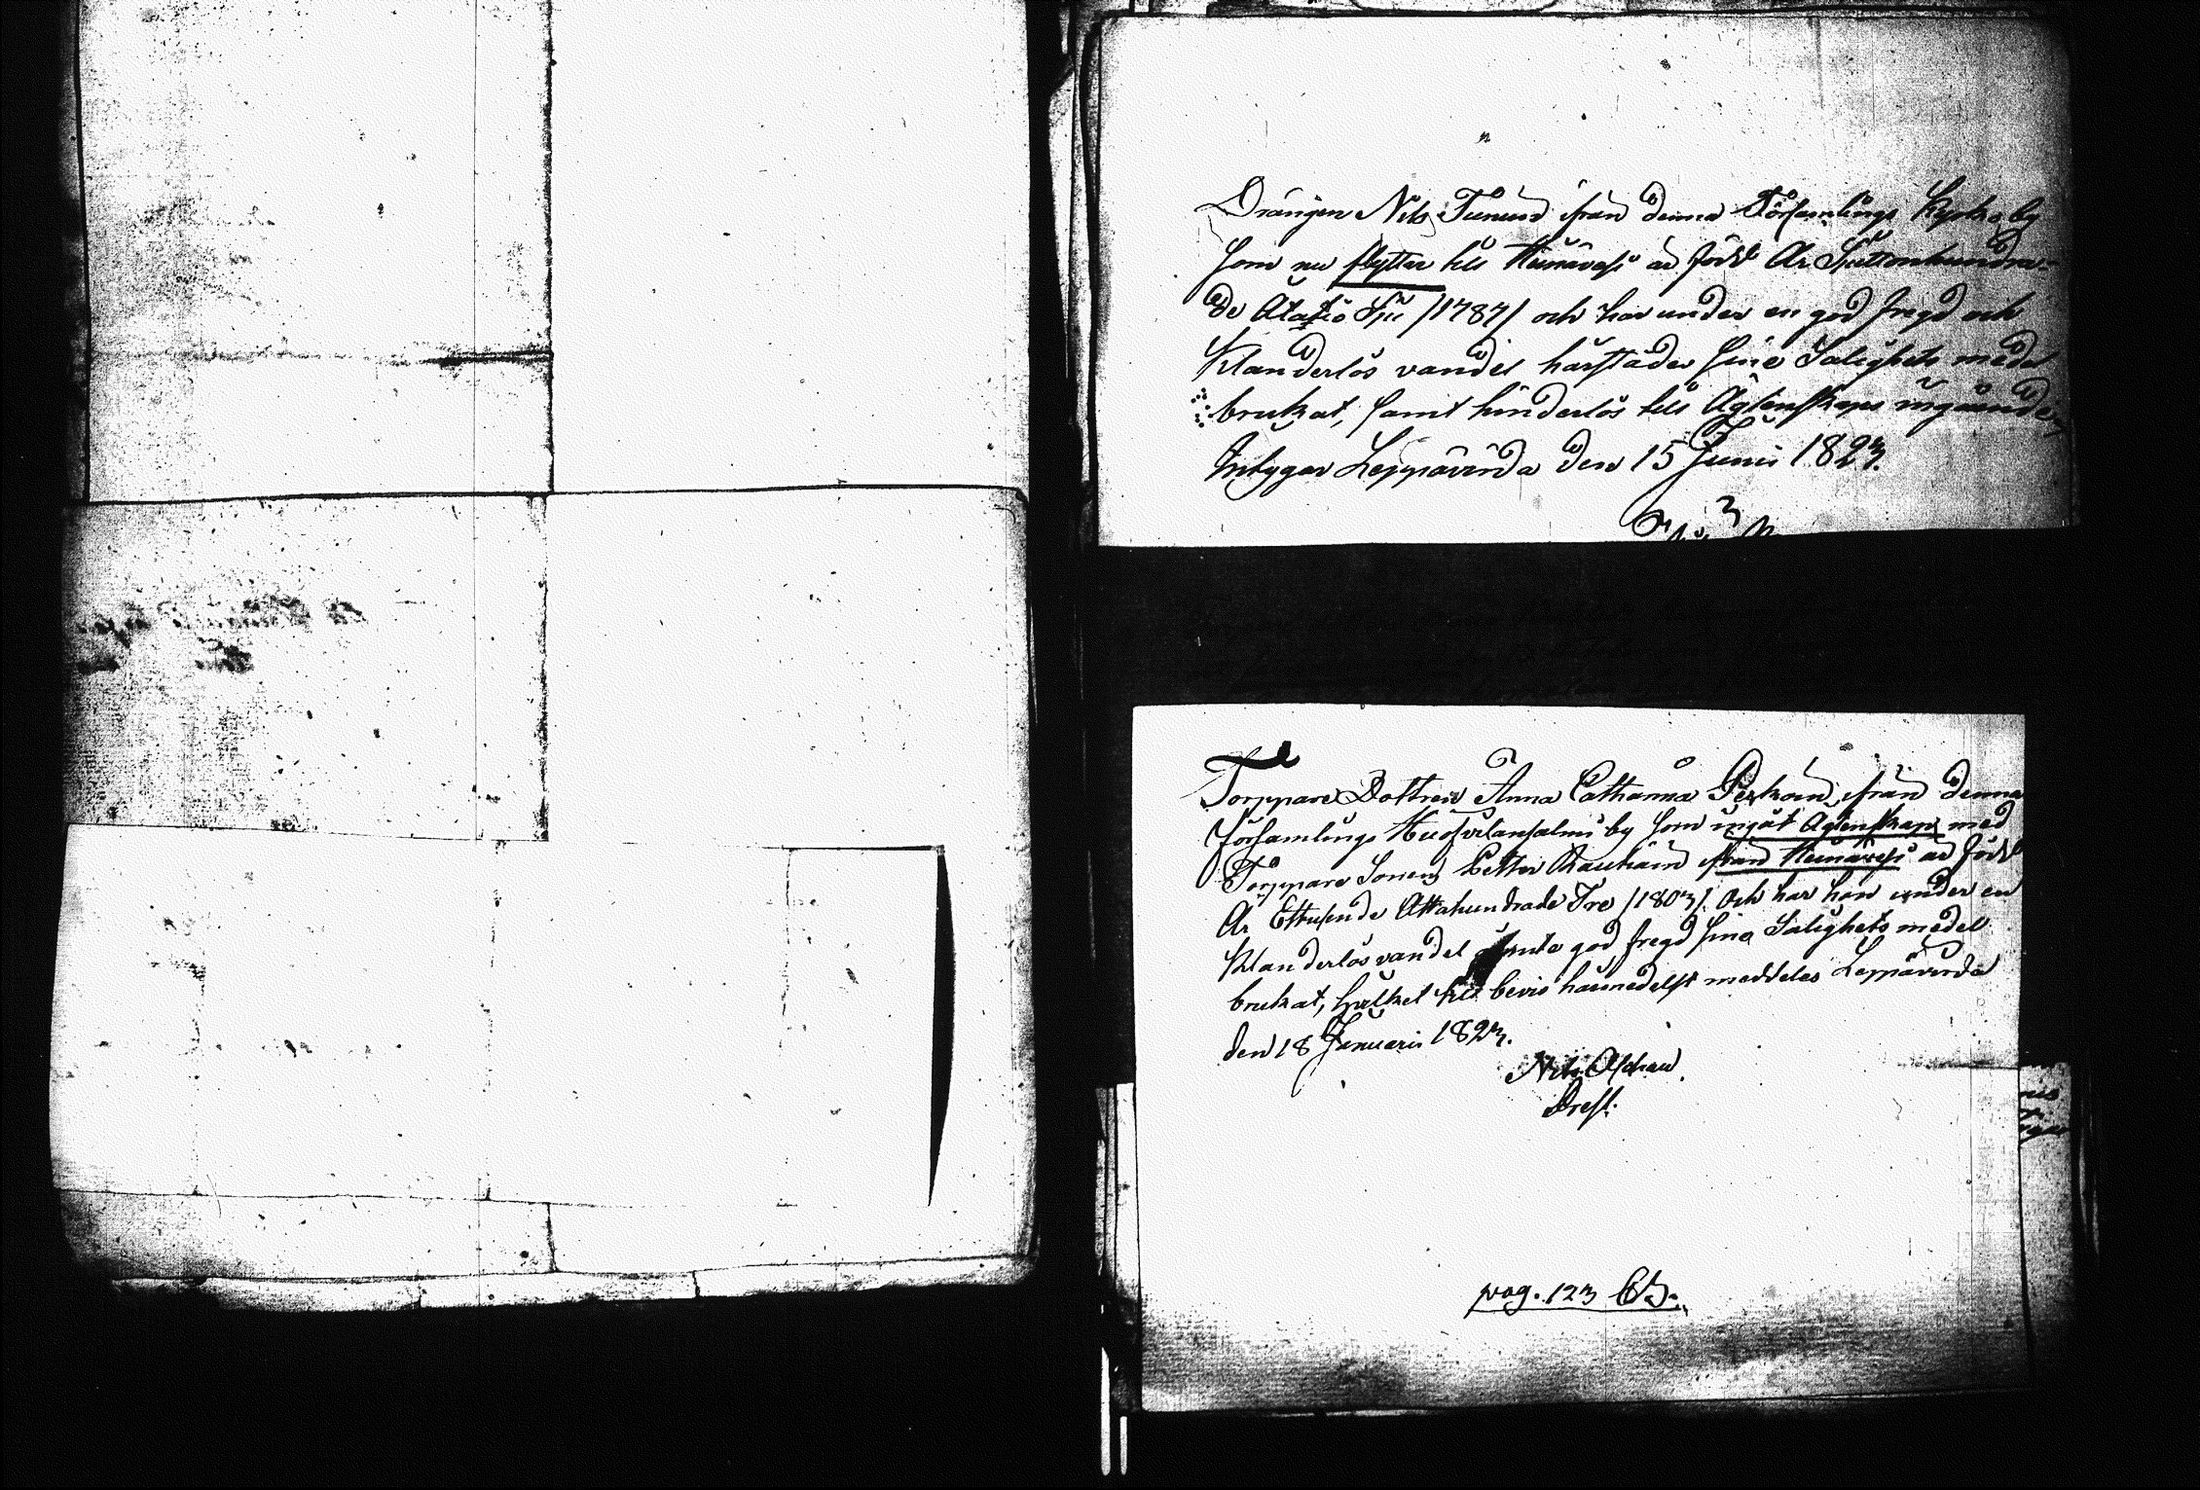 Drängen Nils Tirnind ifrån denna Församlings Kyrkoby
som nu flyttar till Heinävesi är född År Sjuttonhundra-
de Åtatio Sju /1787/ och har under en god fregd och
Klanderlös vandel härstädes sine Salighets medel
brukat, samt hinderlös till Ägtenskaps ingående,
Intygar Leppävirda den 15 Junii 1823.
Torppare Dottren Anna Catharina ifrån denna
Församlings by som ingåt Ägtenskap med
Torppare Sonen Petter ifrån Heinävesi är född
År Ettusende Åttahundrade Tre /1803/. Och har hon under en
Klanderlös vandel god fregd sine Salighets medel
brukat, hvilket till bevis härmedelst meddeles Leppävirda
den 18 Januarii 1823.
Nils Aschan.
Prest.
pag. 123